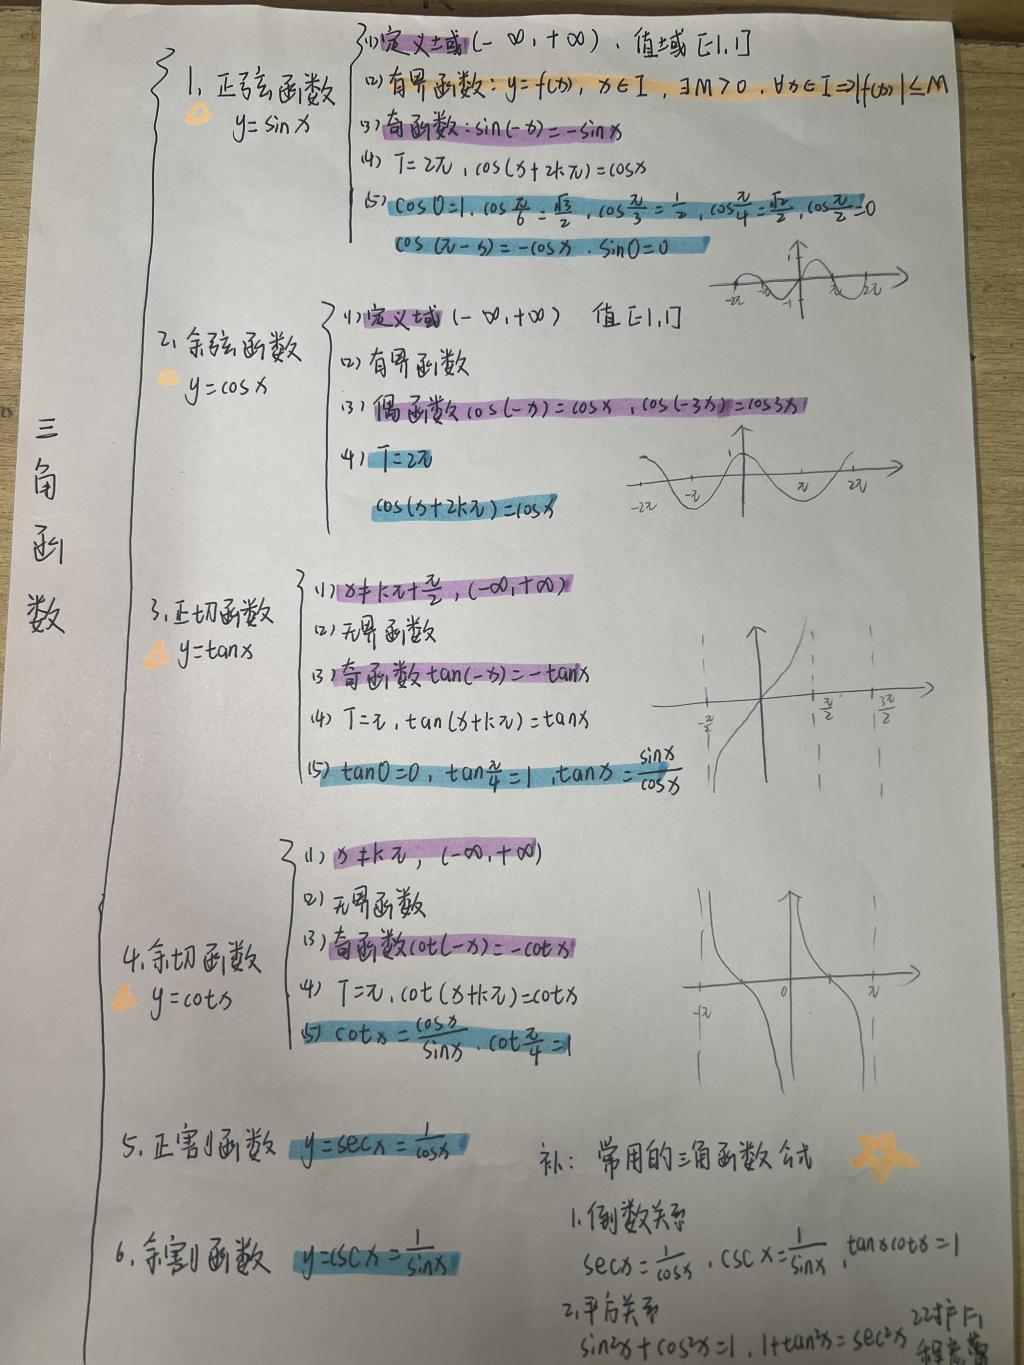 三角函数
1. 正弦函数
y=sinx
(1) 定义域(-∞,+∞)、值域[-1,1]
(2) 有界函数: y=f(x), x∈I, ∃M>0, ∀x∈I⇒|f(x)|≤M
(3) 奇函数: sin(-x)=-sinx
(4) T=2π, cos(x+2kπ)=cosx
(5) cos0=1, cosπ/6=√3/2, cosπ/3=1/2, cosπ/4=√2/2, cosπ/2=0
cos(π-x)=-cosx. sin0=0
-2π -π 1 -1 π 2π
2. 余弦函数
y=cosx
(1) 定义域(-∞,+∞) 值[-1,1]
(2) 有界函数
(3) 偶函数cos(-x)=cosx, cos(-3x)=cos3x
(4) T=2π
cos(x+2kπ)=cosx
-2π -π 1 π 2π
3. 正切函数
y=tanx
(1) x≠kπ+π/2, (-∞,+∞)
(2) 无界函数
(3) 奇函数tan(-x)=-tanx
(4) T=π, tan(x+kπ)=tanx
(5) tan0=0, tanπ/4=1, tanx=sinx/cosx
-π/2 π/2 3π/2
4. 余切函数
y=cotx
(1) x≠kπ, (-∞,+∞)
(2) 无界函数
(3) 奇函数cot(-x)=-cotx
(4) T=π, cot(x+kπ)=cotx
(5) cotx=cosx/sinx. cotπ/4=1
-π 0 π
5. 正割函数 y=secx=1/cosx
6. 余割函数 y=cscx=1/sinx
补: 常用的三角函数公式
1. 倒数关系
secx=1/cosx, cscx=1/sinx, tanxcotx=1
2. 平方关系
sin²x+cos²x=1, 1+tan²x=sec²x